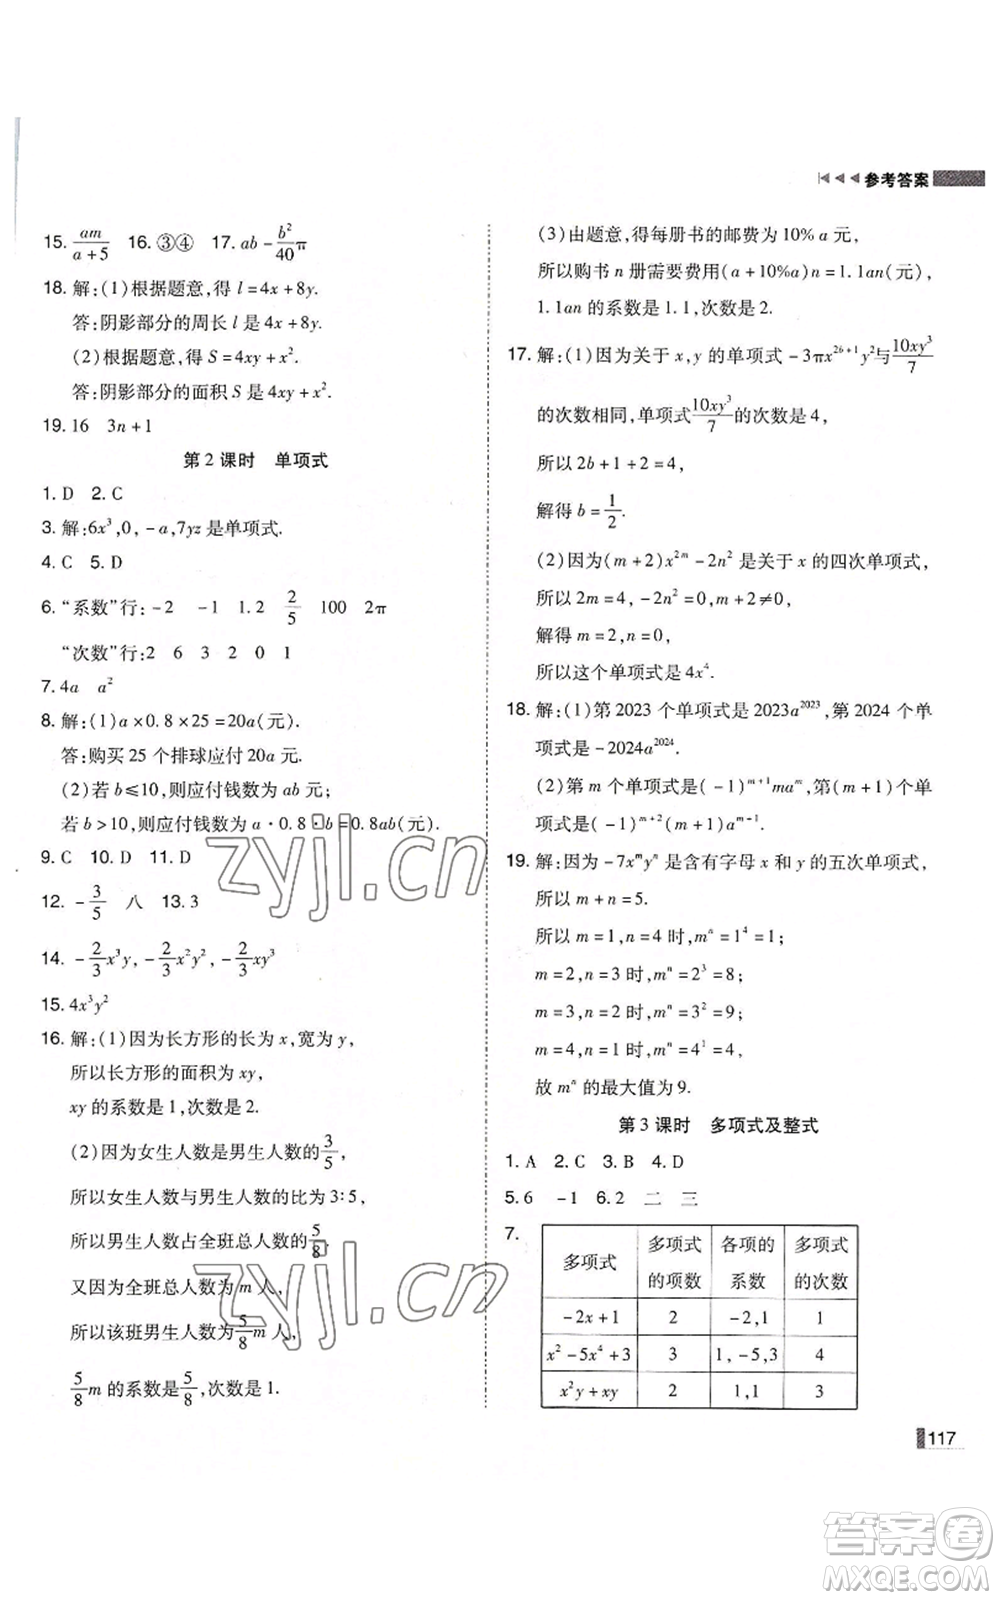 参考答案
15. am/(a+5) 16. ③④ 17. ab - b²/40 π
18. 解:(1)根据题意,得 l=4x+8y.
答:阴影部分的周长 l 是 4x+8y.
(2)根据题意,得 S=4xy+x².
答:阴影部分的面积 S 是 4xy+x².
19. 16 3n+1
第 2 课时 单项式
1. D 2. C
3. 解:6x³,0,-a,7yz 是单项式.
4. C 5. D
6. “系数”行:-2 -1 1.2 2/5 100 2π
“次数”行:2 6 3 2 0 1
7. 4a a²
8. 解:(1)a×0.8×25=20a(元).
答:购买 25 个排球应付 20a 元.
(2)若 b≤10,则应付钱数为 ab 元;
若 b>10,则应付钱数为 a·0.8·b=0.8ab(元).
9. C 10. D 11. D
12. -3/5 八 13. 3
14. -2/3x³y,-2/3x²y²,-2/3xy³
15. 4x³y²
16. 解:(1)因为长方形的长为 x,宽为 y,
所以长方形的面积为 xy,
xy 的系数是 1,次数是 2.
(2)因为女生人数是男生人数的 3/5,
所以女生人数与男生人数的比为 3:5,
所以男生人数占全班总人数的 5/8.
又因为全班总人数为 m 人,
所以该班男生人数为 5/8m 人,
5/8m 的系数是 5/8,次数是 1.
(3)由题意,得每册书的邮费为 10%a 元,
所以购书 n 册需要费用(a+10%a)n=1.1an(元),
1.1an 的系数是 1.1,次数是 2.
17. 解:(1)因为关于 x,y 的单项式 -3πx²ᵇ⁺¹y² 与 10xy³/7
的次数相同,单项式 10xy³/7 的次数是 4,
所以 2b+1+2=4,
解得 b=1/2.
(2)因为(m+2)x²ᵐ-2n² 是关于 x 的四次单项式,
所以 2m=4,-2n²=0,m+2≠0,
解得 m=2,n=0,
所以这个单项式是 4x⁴.
18. 解:(1)第 2023 个单项式是 2023a²⁰²³,第 2024 个单
项式是 -2024a²⁰²⁴.
(2)第 m 个单项式是(-1)ᵐ⁺¹maᵐ,第(m+1)个单
项式是(-1)ᵐ⁺²(m+1)aᵐ⁺¹.
19. 解:因为 -7xᵐyⁿ 是含有字母 x 和 y 的五次单项式,
所以 m+n=5.
所以 m=1,n=4 时,mⁿ=1⁴=1;
m=2,n=3 时,mⁿ=2³=8;
m=3,n=2 时,mⁿ=3²=9;
m=4,n=1 时,mⁿ=4¹=4,
故 mⁿ 的最大值为 9.
第 3 课时 多项式及整式
1. A 2. C 3. B 4. D
5. 6 -1 6. 2 二 三
7.
多项式 多项式的项数 各项的系数 多项式的次数
-2x+1 2 -2,1 1
x²-5x⁴+3 3 1,-5,3 4
x²y+xy 2 1,1 3
117
zyjl.cn
zyjl.cn
答案圈
MXQE.COM